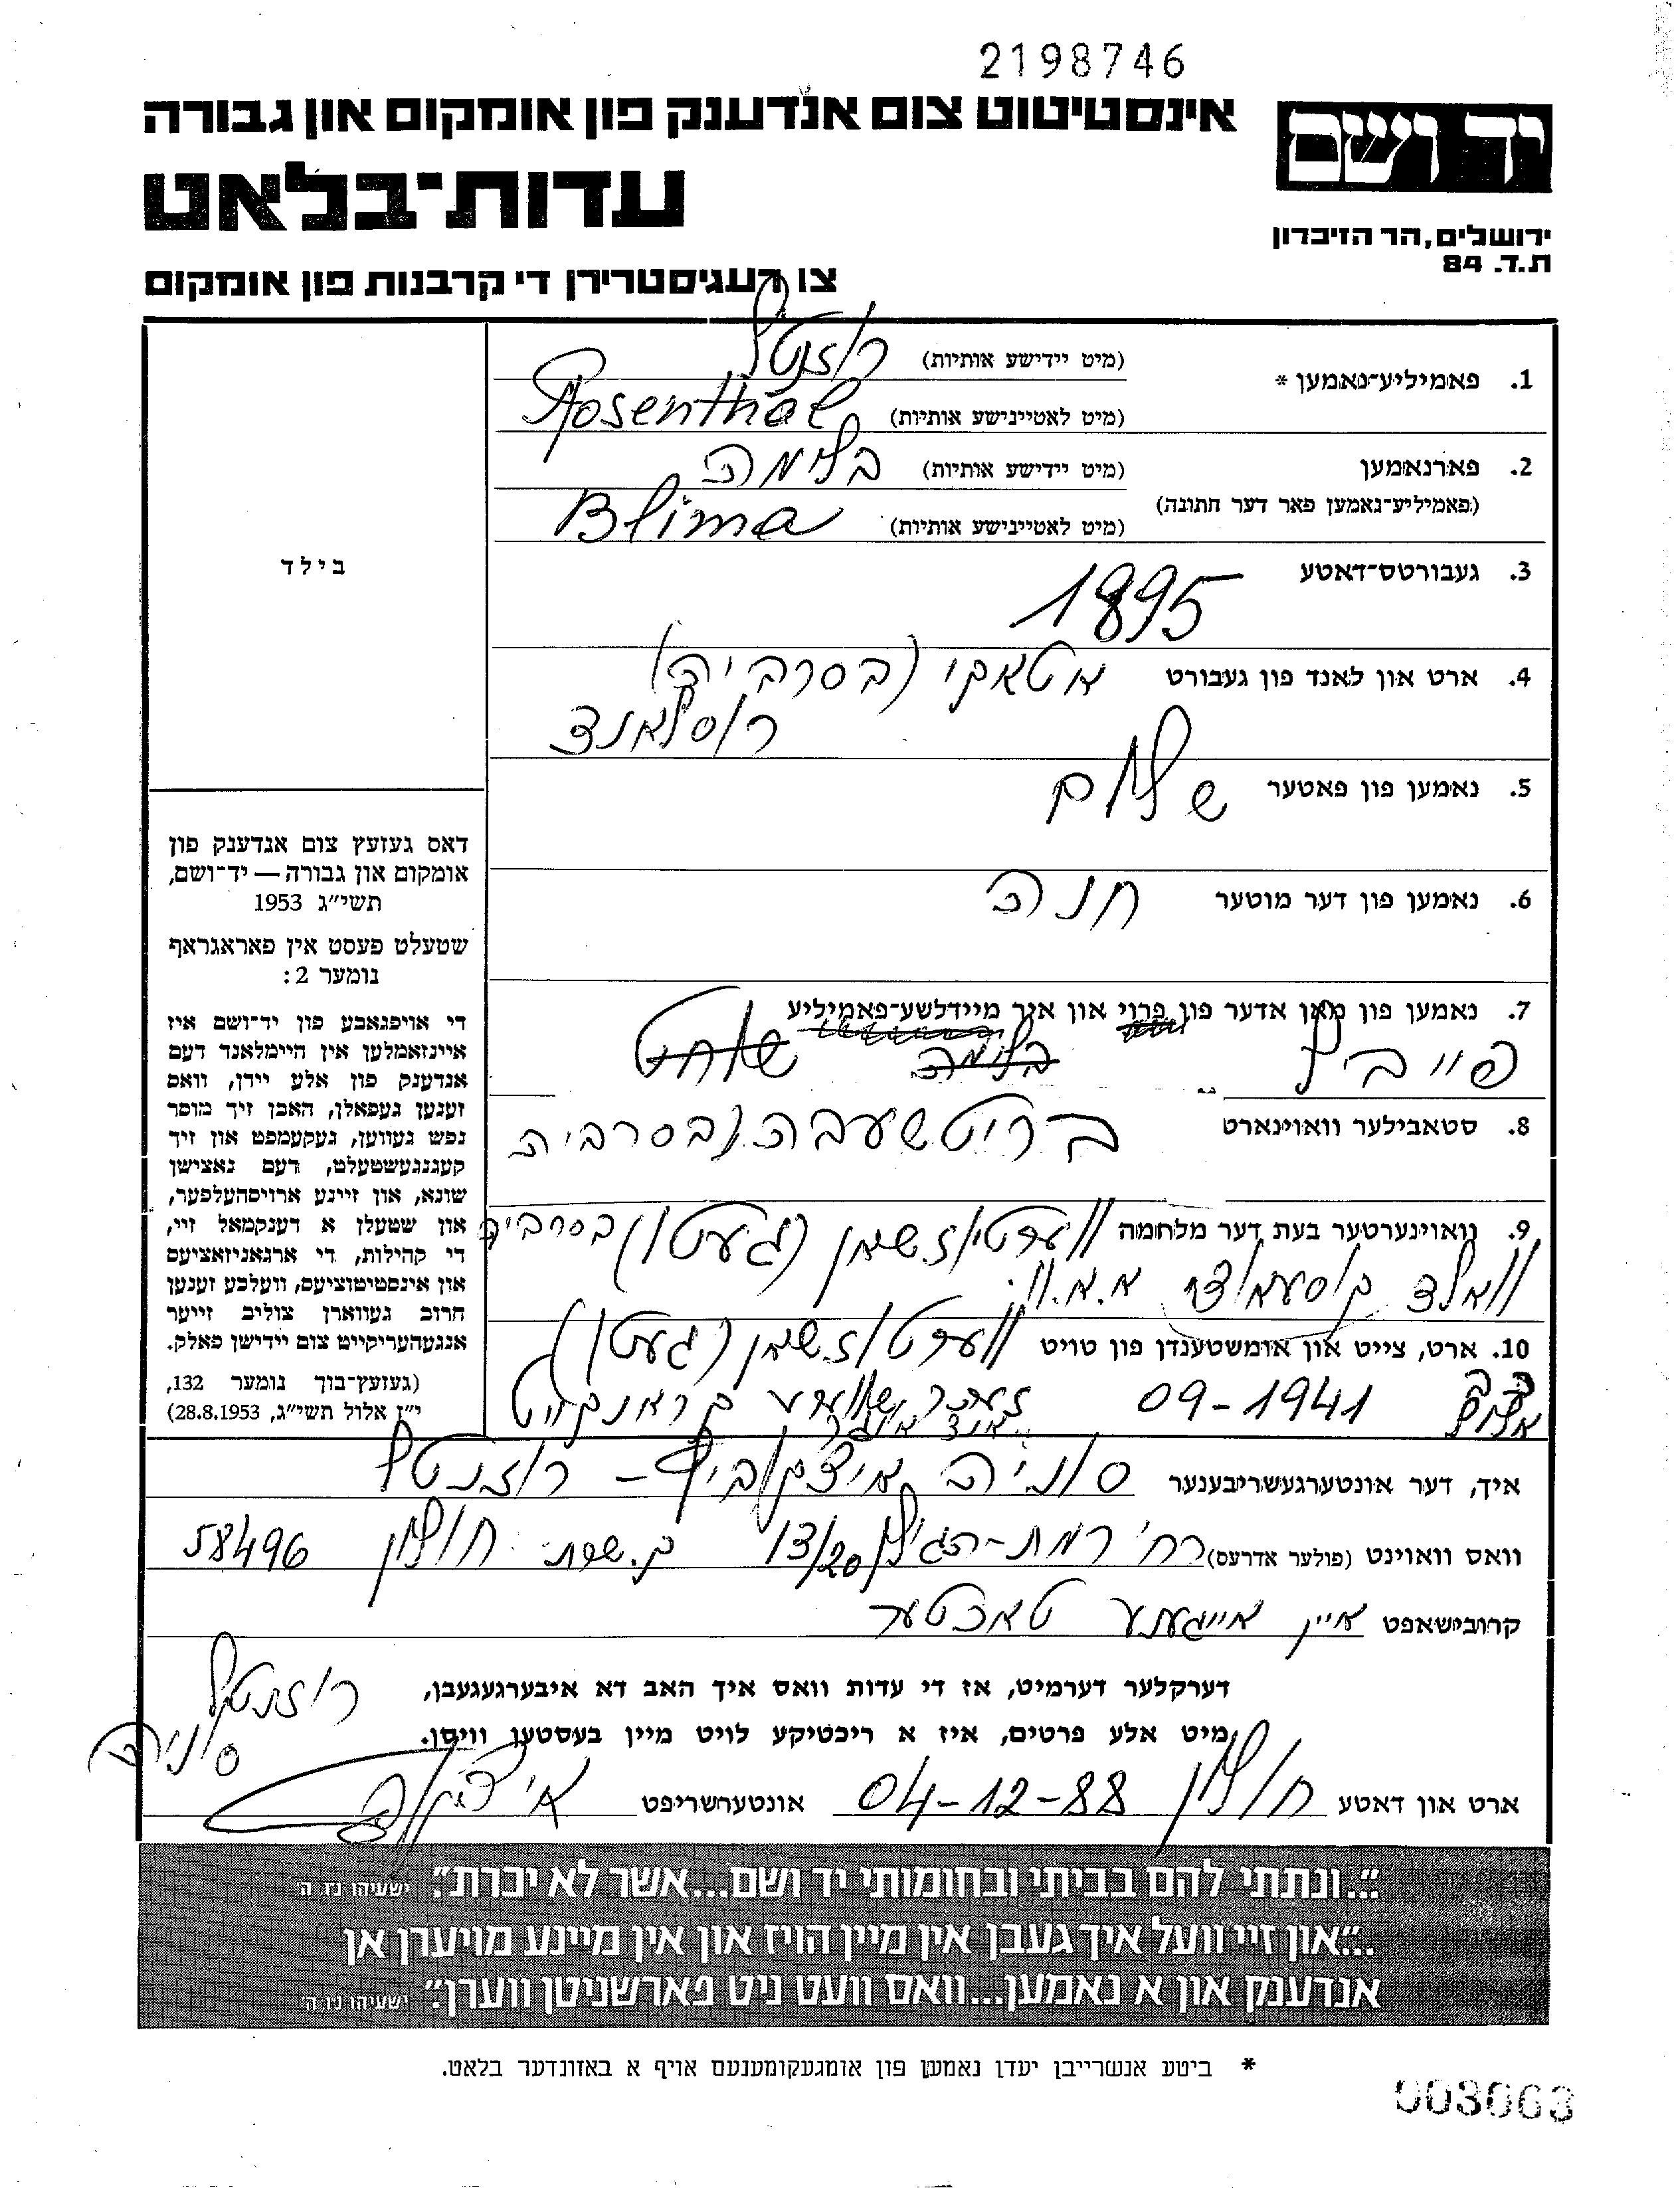 2198746
אינסטיטוט צום אנדענק פון אומקום און גבורה
יד ושם
עדות־בלאט
ירושלים, הר הזיכרון
ת.ד. 84
צו רעגיסטרירן די קרבנות פון אומקום
1. פאמיליע־נאמען * (מיט יידישע אותיות) רוזנטל
(מיט לאטיינישע אותיות) Rosenthal
2. פארנאמען (מיט יידישע אותיות) בלימה
(פאמיליע־נאמען פאר דער חתונה) (מיט לאטיינישע אותיות) Blima
בילד
3. געבורטס־דאטע 1895
4. ארט און לאנד פון געבורט אטאקי (בסרביה)
רוסלאנד
5. נאמען פון פאטער שלום
6. נאמען פון דער מוטער חנה
7. נאמען פון מאן אדער פון פרוי און איר מיידלשע־פאמיליע
פייבל בלימה שוחט
8. סטאבילער וואוינארט בריטשעבה בסרביה
9. וואוינערטער בעת דער מלחמה ווערטוזשאן (געטו) בסרביה
וואלד קוסעאוצי א.א.וו.
10. ארט, צייט און אומשטענדן פון טויט ווערטוזשאן (געטו)
אלול 09-1941 זייער שווערע קראנקייט
און הונגער
דאס געזעץ צום אנדענק פון
אומקום און גבורה — יד־ושם,
תשי״ג 1953
שטעלט פעסט אין פאראגראף
נומער 2:
די אויפגאבע פון יד־ושם איז
איינזאמלען אין היימלאנד דעם
אנדענק פון אלע יידן, וואס
זענען געפאלן, האבן זיך מוסר
נפש געווען, געקעמפט און זיך
קעגנגעשטעלט, דעם נאצישן
שונא, און זיינע ארויסהעלפער,
און שטעלן א דענקמאל זיי,
די קהילות, די ארגאניזאציעס
און אינסטיטוציעס, וועלכע זענען
חרוב געווארן צוליב זייער
אנגעהעריקייט צום יידישן פאלק.
(געזעץ־בוך נומער 132,
י״ז אלול תשי״ג, 28.8.1953)
איך, דער אונטערגעשריבענער סוניה איצקוביץ – רוזנטל
וואס וואוינט (פולער אדרעס) רח' רמת-הגולן 13/20 ק. שרת חולון 58496
קרובישאפט איין אייגענע טאכטער
דערקלער דערמיט, אז די עדות וואס איך האב דא איבערגעגעבן,
מיט אלע פרטים, איז א ריכטיקע לויט מיין בעסטען וויסן.
רוזנטל
סוניה
ארט און דאטע חולון 04-12-88 אונטערשריפט איצקוביץ
״...ונתתי להם בביתי ובחומותי יד ושם...אשר לא יכרת״. ישעיהו נו, ה'
...״און זיי וועל איך געבן אין מיין הויז און אין מיינע מויערן אן
אנדענק און א נאמען...וואס וועט ניט פארשניטן ווערן״. ישעיהו נו, ה'
* ביטע אנשרייבן יעדן נאמען פון אומגעקומענעם אויף א באזונדער בלאט.
003063